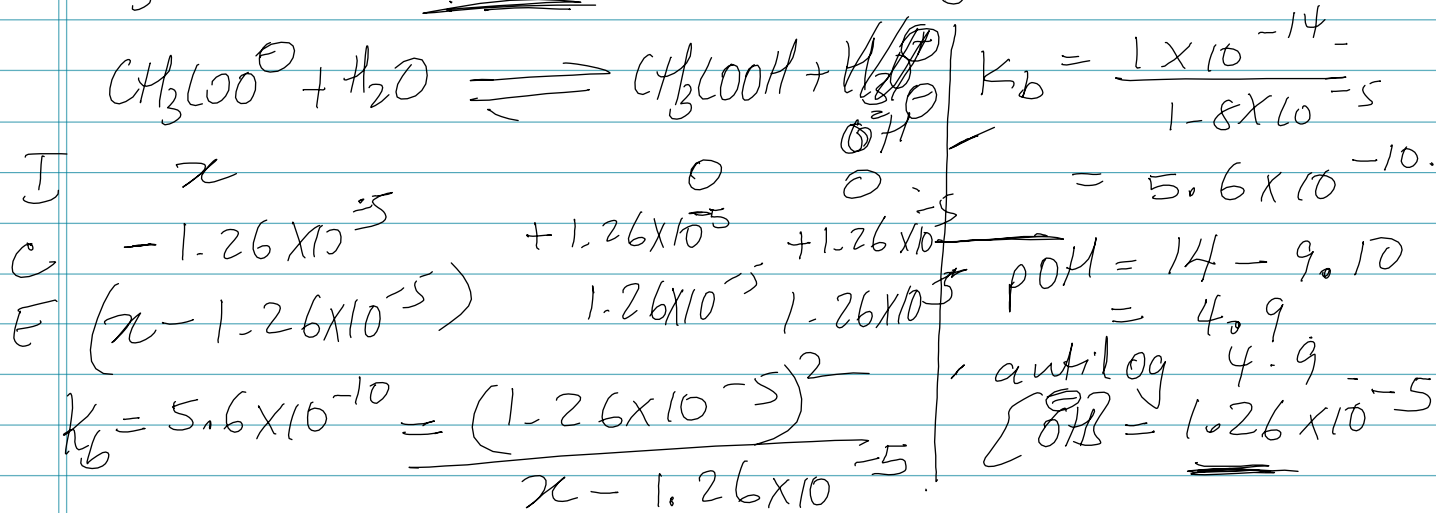 CH₃COO⊖ + H₂O ⇌ CH₃COOH + ⊖OH
I x 0 0
C - 1.26 X10⁻⁵ + 1.26X10⁻⁵ +1.26 X10⁻⁵
E (x - 1.26X10⁻⁵) 1.26X10⁻⁵ 1.26X10⁻⁵
K_b = 5.6X10⁻¹⁰ = (1.26X10⁻⁵)² / x - 1.26X10⁻⁵
K_b = 1 X 10⁻¹⁴ / 1.8X10⁻⁵
= 5.6 X 10⁻¹⁰.
pOH = 14 - 9.10
= 4.9
antilog 4.9
[⊖OH] = 1.26 X10⁻⁵